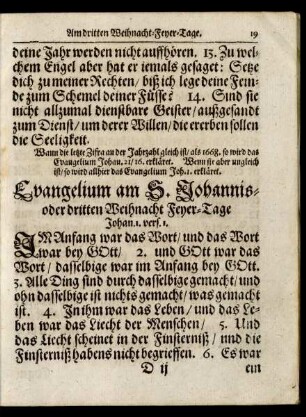 Am dritten Weihnacht-Feyer-Tage. 19
deine Jahr werden nicht auffhören. 13. Zu wel-
chem Engel aber hat er iemals gesaget: Setze
dich zu meiner Rechten/ biß ich lege deine Fein-
de zum Schemel deiner Füsse? 14. Sind sie
nicht allzumal dienstbare Geister/ außgesandt
zum Dienst/ um derer Willen/ die ererben sollen
die Seeligkeit.
Wann die letzte Zifra an der Jahrzahl gleich ist/ als 1668. so wird das
Evangelium Johan. 21/16. erkläret. Wenn sie aber ungleich
ist/ so wird allhier das Evangelium Joh. 1. erkläret.
Evangelium am S. Johannis-
oder dritten Weihnacht Feyer-Tage
Johan. 1. vers. 1.
IM Anfang war das Wort/ und das Wort
war bey GOtt/ 2. und GOtt war das
Wort/ dasselbige war im Anfang bey GOtt.
3. Alle Ding sind durch dasselbige gemacht/ und
ohn dasselbige ist nichts gemacht/ was gemacht
ist. 4. In ihm war das Leben/ und das Le-
ben war das Liecht der Menschen/ 5. Und
das Liecht scheinet in der Finsterniß/ und die
Finsterniß habens nicht begrieffen. 6. Es war
D ij ein